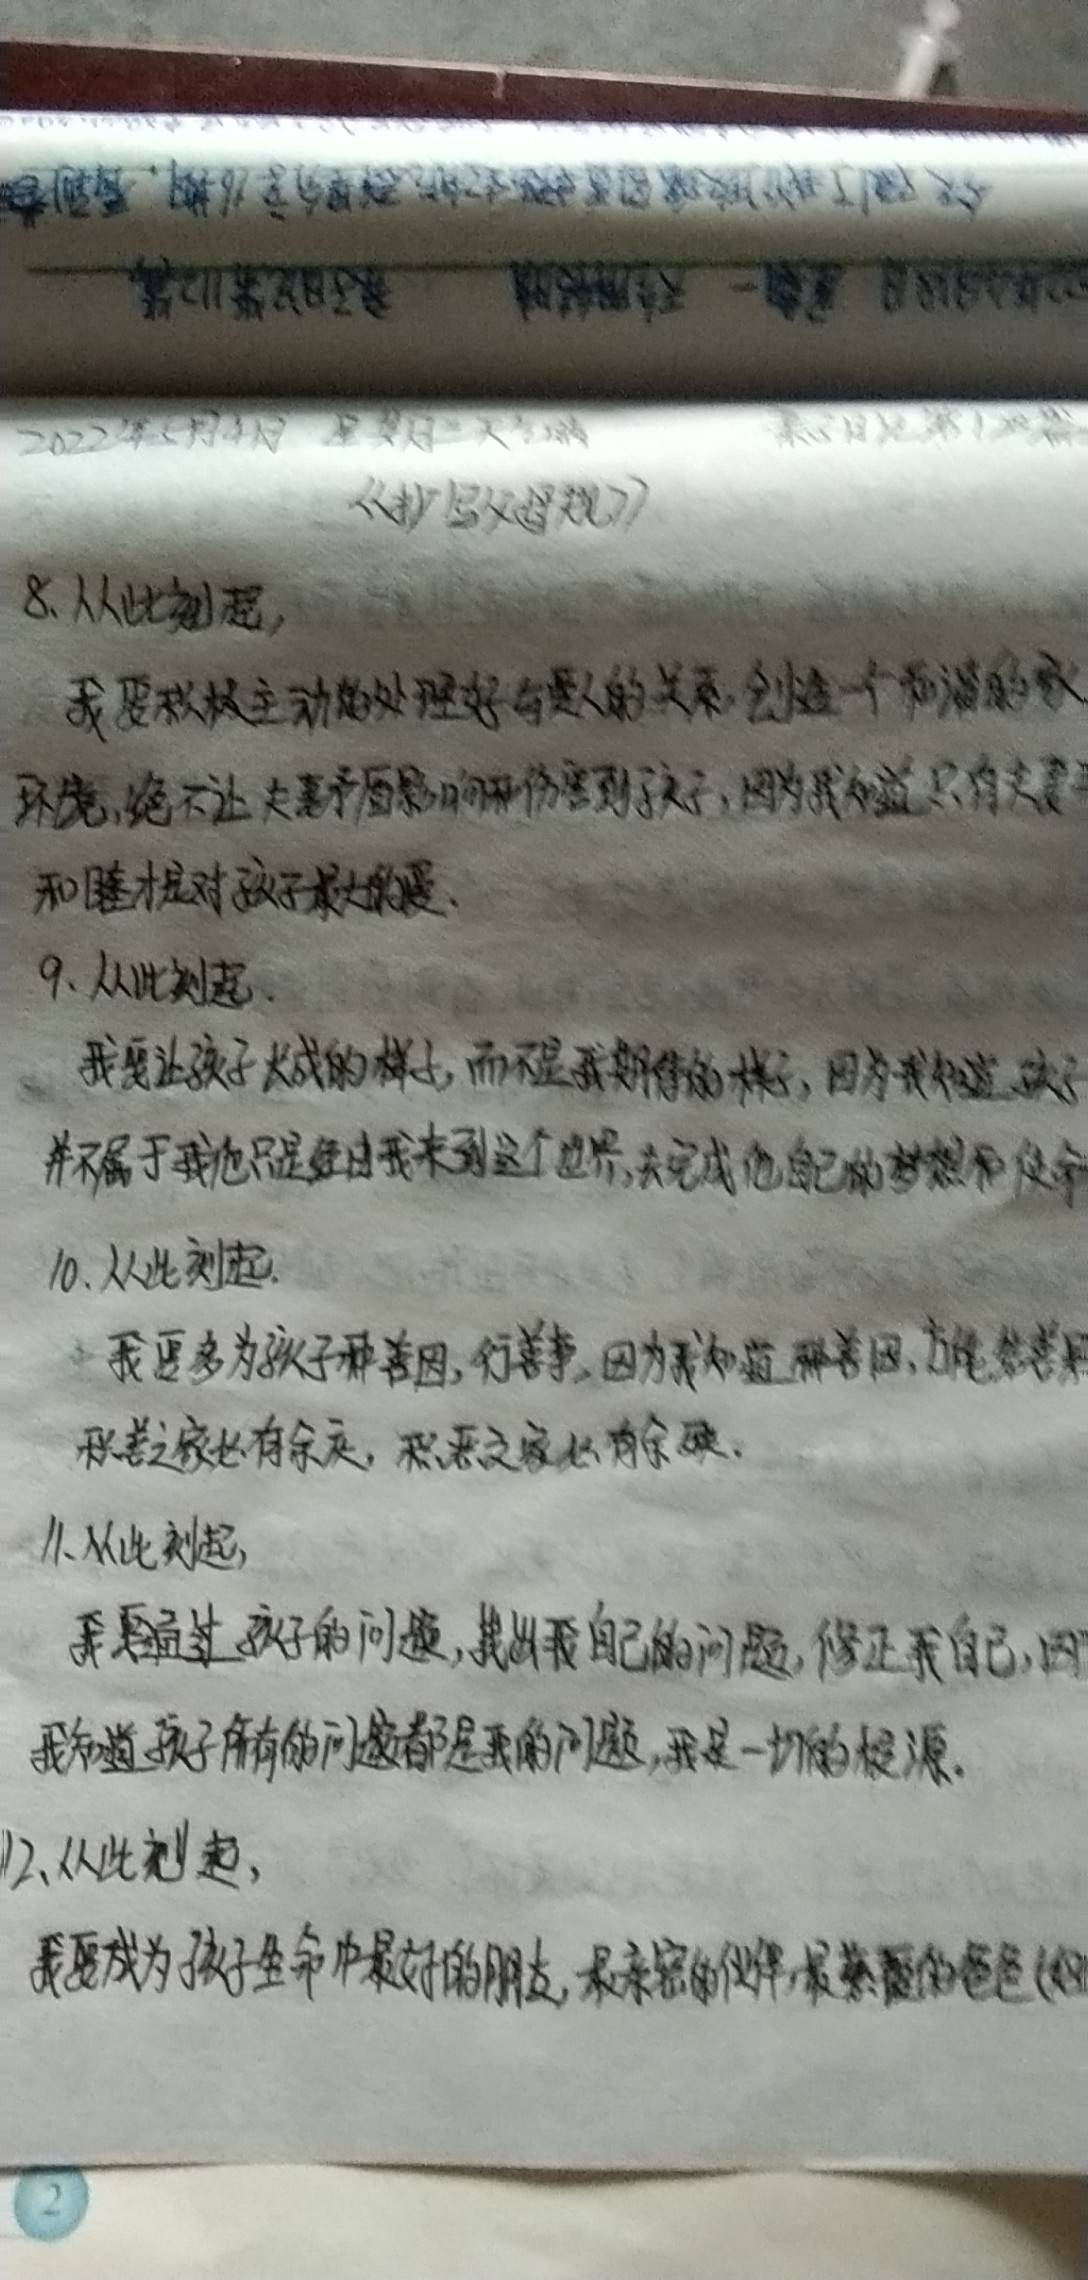 2022年5月4日 星期二 天气晴 亲子日记第120篇
《抄写父母规》
8、从此刻起，
我要积极主动的处理好与爱人的关系，创造一个和谐的家
环境，绝不让夫妻矛盾影响和伤害到孩子，因为我知道只有夫妻
和睦才是对孩子最大的爱.
9、从此刻起.
我要让孩子长成的样子，而不是我期待的样子，因为我知道孩子
并不属于我他只是经由我来到这个世界，去完成他自己的梦想和使命
10、从此刻起.
我要多为孩子种善因，行善事。因为我知道种善因、方能结善果
积善之家必有余庆，积恶之家必有余殃.
11、从此刻起，
我要通过孩子的问题，找出我自己的问题，修正我自己，因
我知道孩子所有的问题都是我的问题，我是一切的根源。
12、从此刻起，
我要成为孩子生命中最好的朋友，最亲密的伙伴，最热爱的爸爸（妈
2